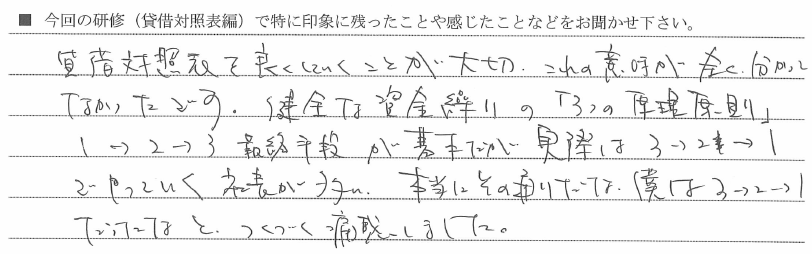 ■ 今回の研修（貸借対照表編）で特に印象に残ったことや感じたことなどをお聞かせ下さい。
貸借対照表を良くしていくことが大切。これの意味が全く分かって
なかったです。健全な資金繰りの「3つの原理原則」
1→2→3 最終手段が基本だが実際は3→2→1
でやっていく代表が多い。本当にその通りだな。僕は3→2→1
だったなと、つくづく痛感しました。